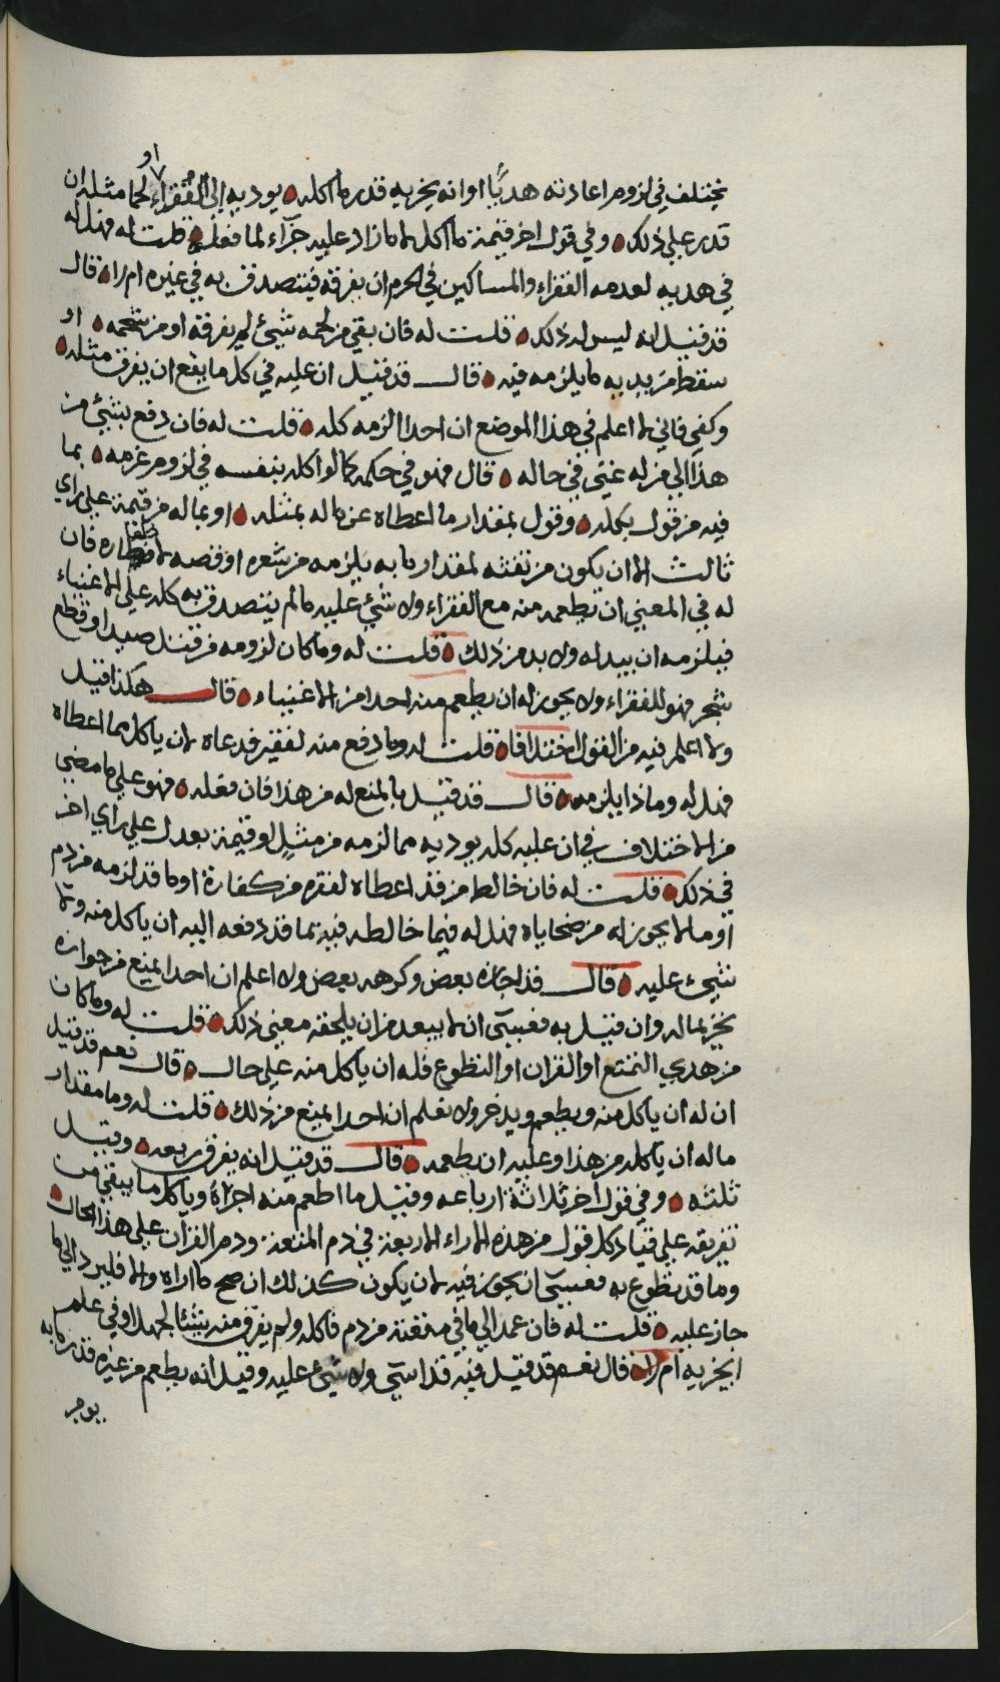 او
يختلف في لزوم اعادته هديًا او انه يجزيه قدر ما اكله يوديه الى الفقراء لحما مثله ان
قدر على ذلك وفي قول اخر قيمة ما اكل لا ما زاد عليه جزآء لما فعله قلت له فهل له
في هديه لعدمه الفقراء والمساكين في الحرم ان يفرقه فيتصدق به في غيره ام لا قال
قد قيل انه ليس له ذلك قلت له فان بقي من لحمه شيئ لم يفرقه او من شحمه او
سقط من يديه ما يلزمه فيه قال قد قيل ان عليه في كل ما يقع ان يفرق مثله
وكفى فاني لا اعلم في هذا الموضع ان احدا الزمه كله قلت له فان دفع بشئ من
هذا الى من له غنى في حاله قال فهو في حكمه كما لو اكله بنفسه في لزوم غرمه بما
فيه من قول بكله وقول بمقدار ما اعطاه عن ماله بمثله او بماله من قيمة على راي
ثالث الا ان يكون من تفثه لمقدار ما به يلزمه من شعره او قصه لاظفاره فان
له في المعنى ان يطعمه منه مع الفقراء ولا شيئ عليه ما لم يتصدق به كله على الاغنياء
فيلزمه ان يبدله ولا بد من ذلك قلت له وما كان لزومه من قتل صيد او قطع
شجر فهو للفقراء ولا يجوز له ان يطعم منه احدا من الاغنياء قال هكذا قيل
ولا اعلم فيه من القول اختلافا قلت له وما دفع منه لفقير فدعاه لان ياكل مما اعطاه
فهل له وماذا يلزمه قال قد قيل بالمنع له من هذا فان فعله فهو على ما مضى
من الاختلاف في ان عليه كله يوديه مما لزمه من مثل او قيمة بعدل على راي اخر
في ذلك قلت له فان خالط من قد اعطاه لفقره من كفارة او ما قد لزمه من دم
او ما لا يجوز له من ضحاياه فهل له فيما خالطه فيه مما قد دفعه اليه ان ياكل منه وما
شيئ عليه قال قد اجازه بعض وكرهه بعض ولا اعلم ان احدا يمنع من جوازه
بخير ماله وان قيل به فعسى ان لا يبعد من ان يلحقه معنى ذلك قلت له وما كان
من هدي التمتع او القران او التطوع فله ان ياكل منه على حال قال نعم قد قيل
ان له ان ياكل منه ويطعم ويدخر ولا نعلم ان احدا يمنع من ذلك قلت له وما مقدار
ماله ان ياكله من هذا وعليه ان يطعمه قال قد قيل انه يفرق ربعه وقيل
ثلثه وفي قول اخر ثلاثة ارباعه وقيل ما اطعم منه اجزاه وياكل ما يبقى من
تفريقه على قياد كل قول من هذه الاراء الاربعة في دم المتعة ودم القران على هذا الحال
وما قد تطوع به فعسى ان يجوز فيه لان يكون كذلك ان صح ما اراه والا فليرد الى ما
جاز عليه قلت له فان عمد الى ما في متعته من دم فاكله ولم يفرق منه شيئا لجهل او في علم
ايجزيه ام لا قال نعم قد قيل فيه قد اسى ولا شيئ عليه وقيل انه يطعم من غيره قدر ما به
يوجر